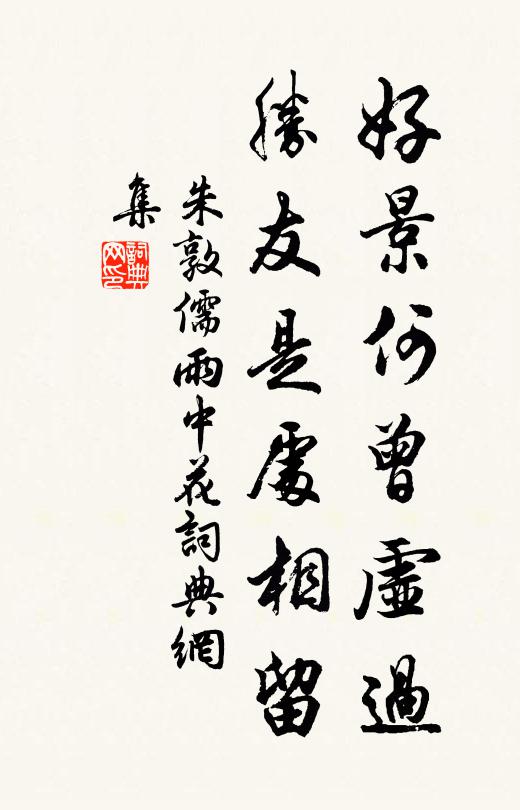 好景何曾虛過
勝友是處相留
朱敦儒雨中花詞典網
集
詞典网印